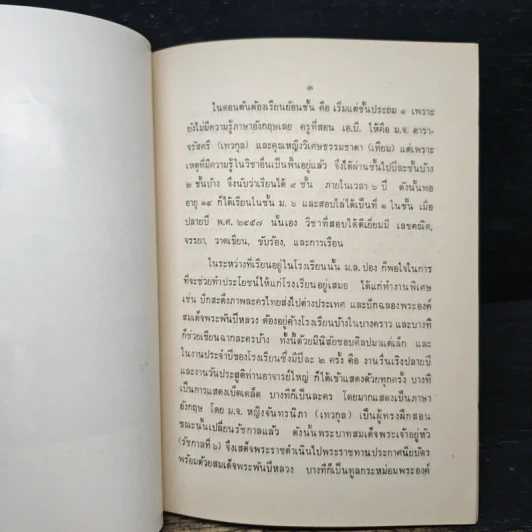 ๓
ในตอนต้นต้องเรียนย้อนชั้น คือ เริ่มแต่ชั้นประถม ๑ เพราะ
ยังไม่มีความรู้ภาษาอังกฤษเลย ครูที่สอน เอ.บี. ให้คือ ม.จ. ดารา-
จรัสศรี (เทวกุล) และคุณหญิงวิเศษธรรมธาดา (เทียม) แต่เพราะ
เหตุที่มีความรู้ในวิชาอื่นเป็นพื้นอยู่แล้ว จึงได้ผ่านชั้นไปปีละชั้นบ้าง
๒ ชั้นบ้าง จึงนับว่าเรียนได้ ๙ ชั้น ภายในเวลา ๖ ปี ดังนั้นพอ
อายุ ๑๔ ก็ได้เรียนในชั้น ม. ๖ และสอบไล่ได้เป็นที่ ๑ ในชั้น เมื่อ
ปลายปี พ.ศ. ๒๔๕๗ นั้นเอง วิชาที่สอบได้ดีเยี่ยมมี เลขคณิต,
จรรยา, วาดเขียน, ขับร้อง, และการเรือน
ในระหว่างที่เรียนอยู่ในโรงเรียนนั้น ม.ล. ปอง ก็พอใจในการ
ที่จะช่วยทำประโยชน์ให้แก่โรงเรียนอยู่เสมอ ได้แก่ทำงานพิเศษ
เช่น ปักสะดึงภาพละครไทยส่งไปต่างประเทศ และปักฉลองพระองค์
สมเด็จพระพันปีหลวง ต้องอยู่ค้างโรงเรียนบ้างในบางคราว และบางที
ก็ช่วยเขียนฉากละครบ้าง ทั้งนี้ด้วยมีนิสัยชอบศิลปมาแต่เล็ก และ
ในงานประจำปีของโรงเรียนซึ่งมีปีละ ๒ ครั้ง คือ งานรื่นเริงปลายปี
และงานวันประสูติท่านอาจารย์ใหญ่ ก็ได้เข้าแสดงด้วยทุกครั้ง บางที
เป็นการแสดงเบ็ดเตล็ด บางทีก็เป็นละคร โดยมากแสดงเป็นภาษา
อังกฤษ โดย ม.จ. หญิงจันทรนิภา (เทวกุล) เป็นผู้ทรงฝึกสอน
ขณะนั้นเปลี่ยนรัชกาลแล้ว ดังนั้นพระบาทสมเด็จพระเจ้าอยู่หัว
(รัชกาลที่ ๖) จึงเสด็จพระราชดำเนินไปพระราชทานประกาศนียบัตร
พร้อมด้วยสมเด็จพระพันปีหลวง บางทีก็เป็นทูลกระหม่อมพระองค์